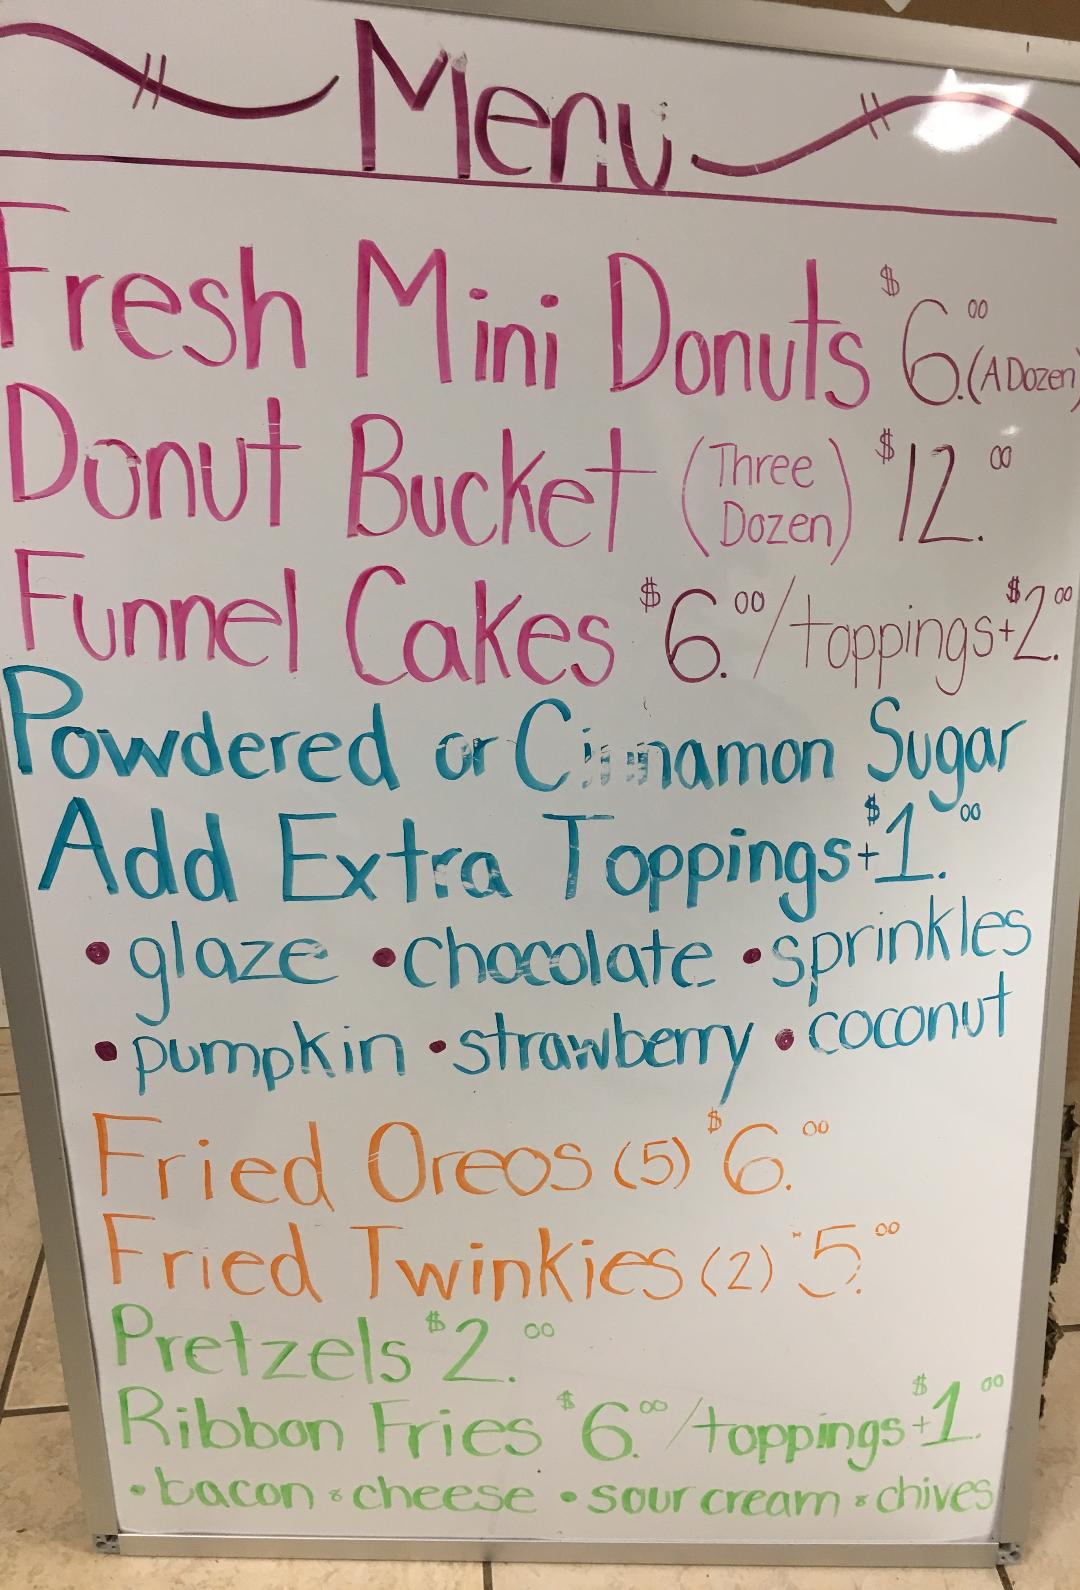 Menu
Fresh Mini Donuts $6.00 (A Dozen)
Donut Bucket (Three Dozen) $12.00
Funnel Cakes $6.00/toppings+$2.00
Powdered or Cinnamon Sugar
Add Extra Toppings+$1.00
•glaze •chocolate •sprinkles
•pumpkin •strawberry •coconut
Fried Oreos (5) $6.00
Fried Twinkies (2) $5.00
Pretzels $2.00
Ribbon Fries $6.00/toppings+$1.00
•bacon & cheese •sour cream & chives